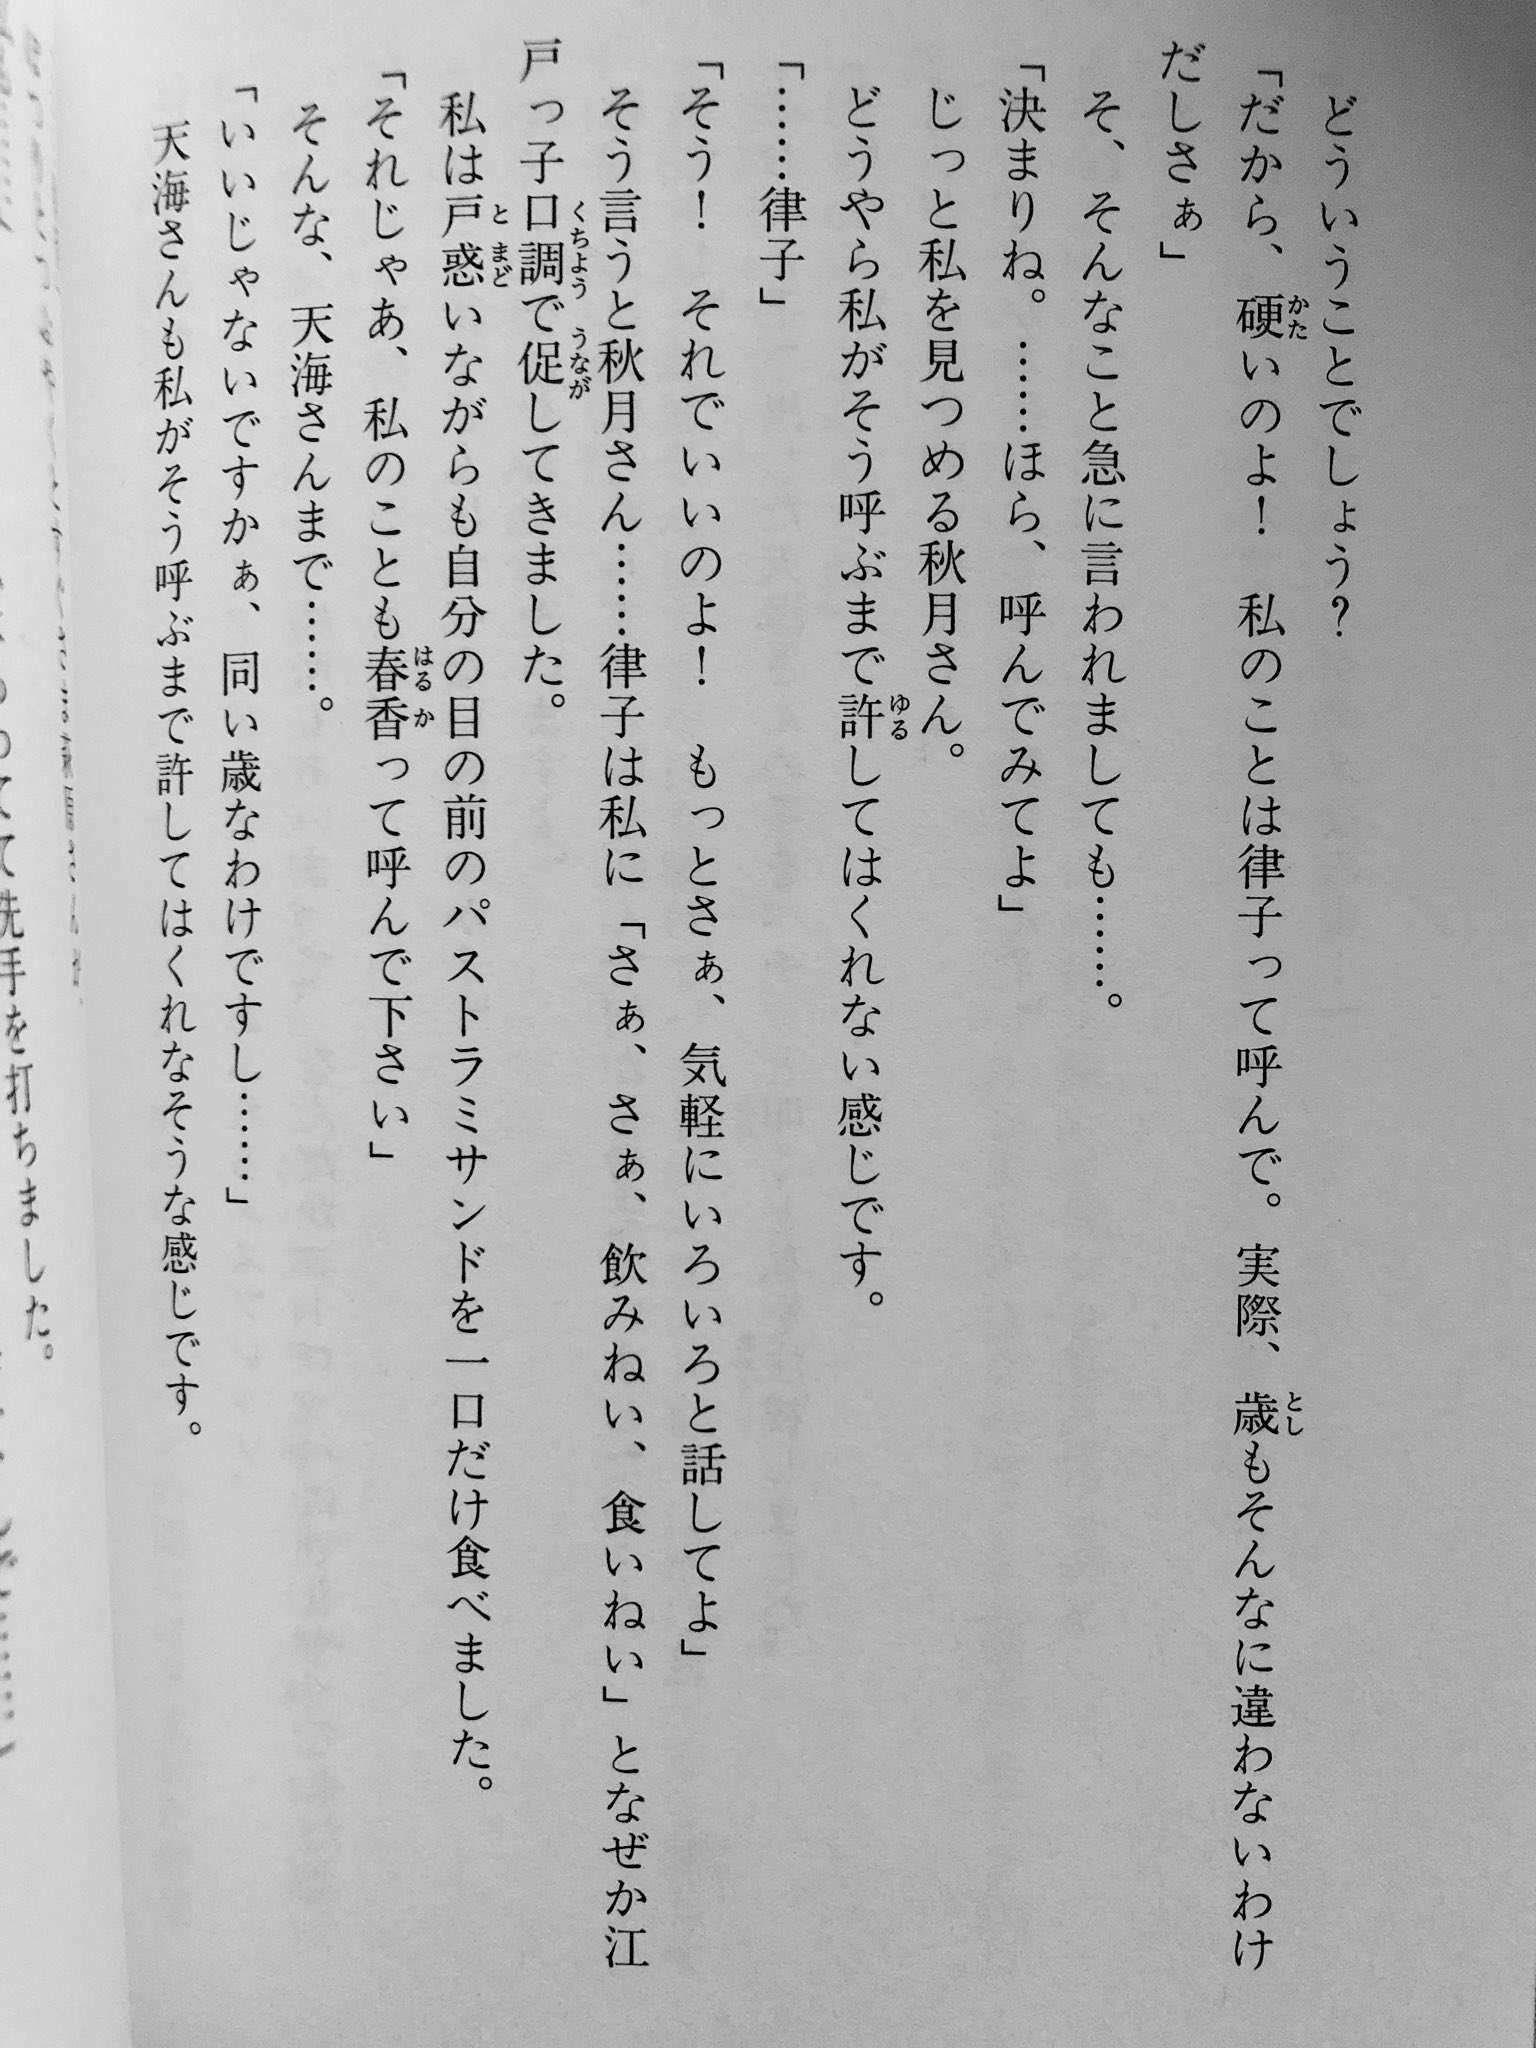 どういうことでしょう？
「だから、硬いのよ！　私のことは律子って呼んで。実際、歳もそんなに違わないわけ
だしさぁ」
そ、そんなこと急に言われましても……。
「決まりね。……ほら、呼んでみてよ」
じっと私を見つめる秋月さん。
どうやら私がそう呼ぶまで許してはくれない感じです。
「……律子」
「そう！　それでいいのよ！　もっとさぁ、気軽にいろいろと話してよ」
そう言うと秋月さん……律子は私に「さぁ、さぁ、飲みねい、食いねい」となぜか江
戸っ子口調で促してきました。
私は戸惑いながらも自分の目の前のパストラミサンドを一口だけ食べました。
「それじゃあ、私のことも春香って呼んで下さい」
そんな、天海さんまで……。
「いいじゃないですかぁ、同い歳なわけですし……」
天海さんも私がそう呼ぶまで許してはくれなそうな感じです。
って先手を打ちました。